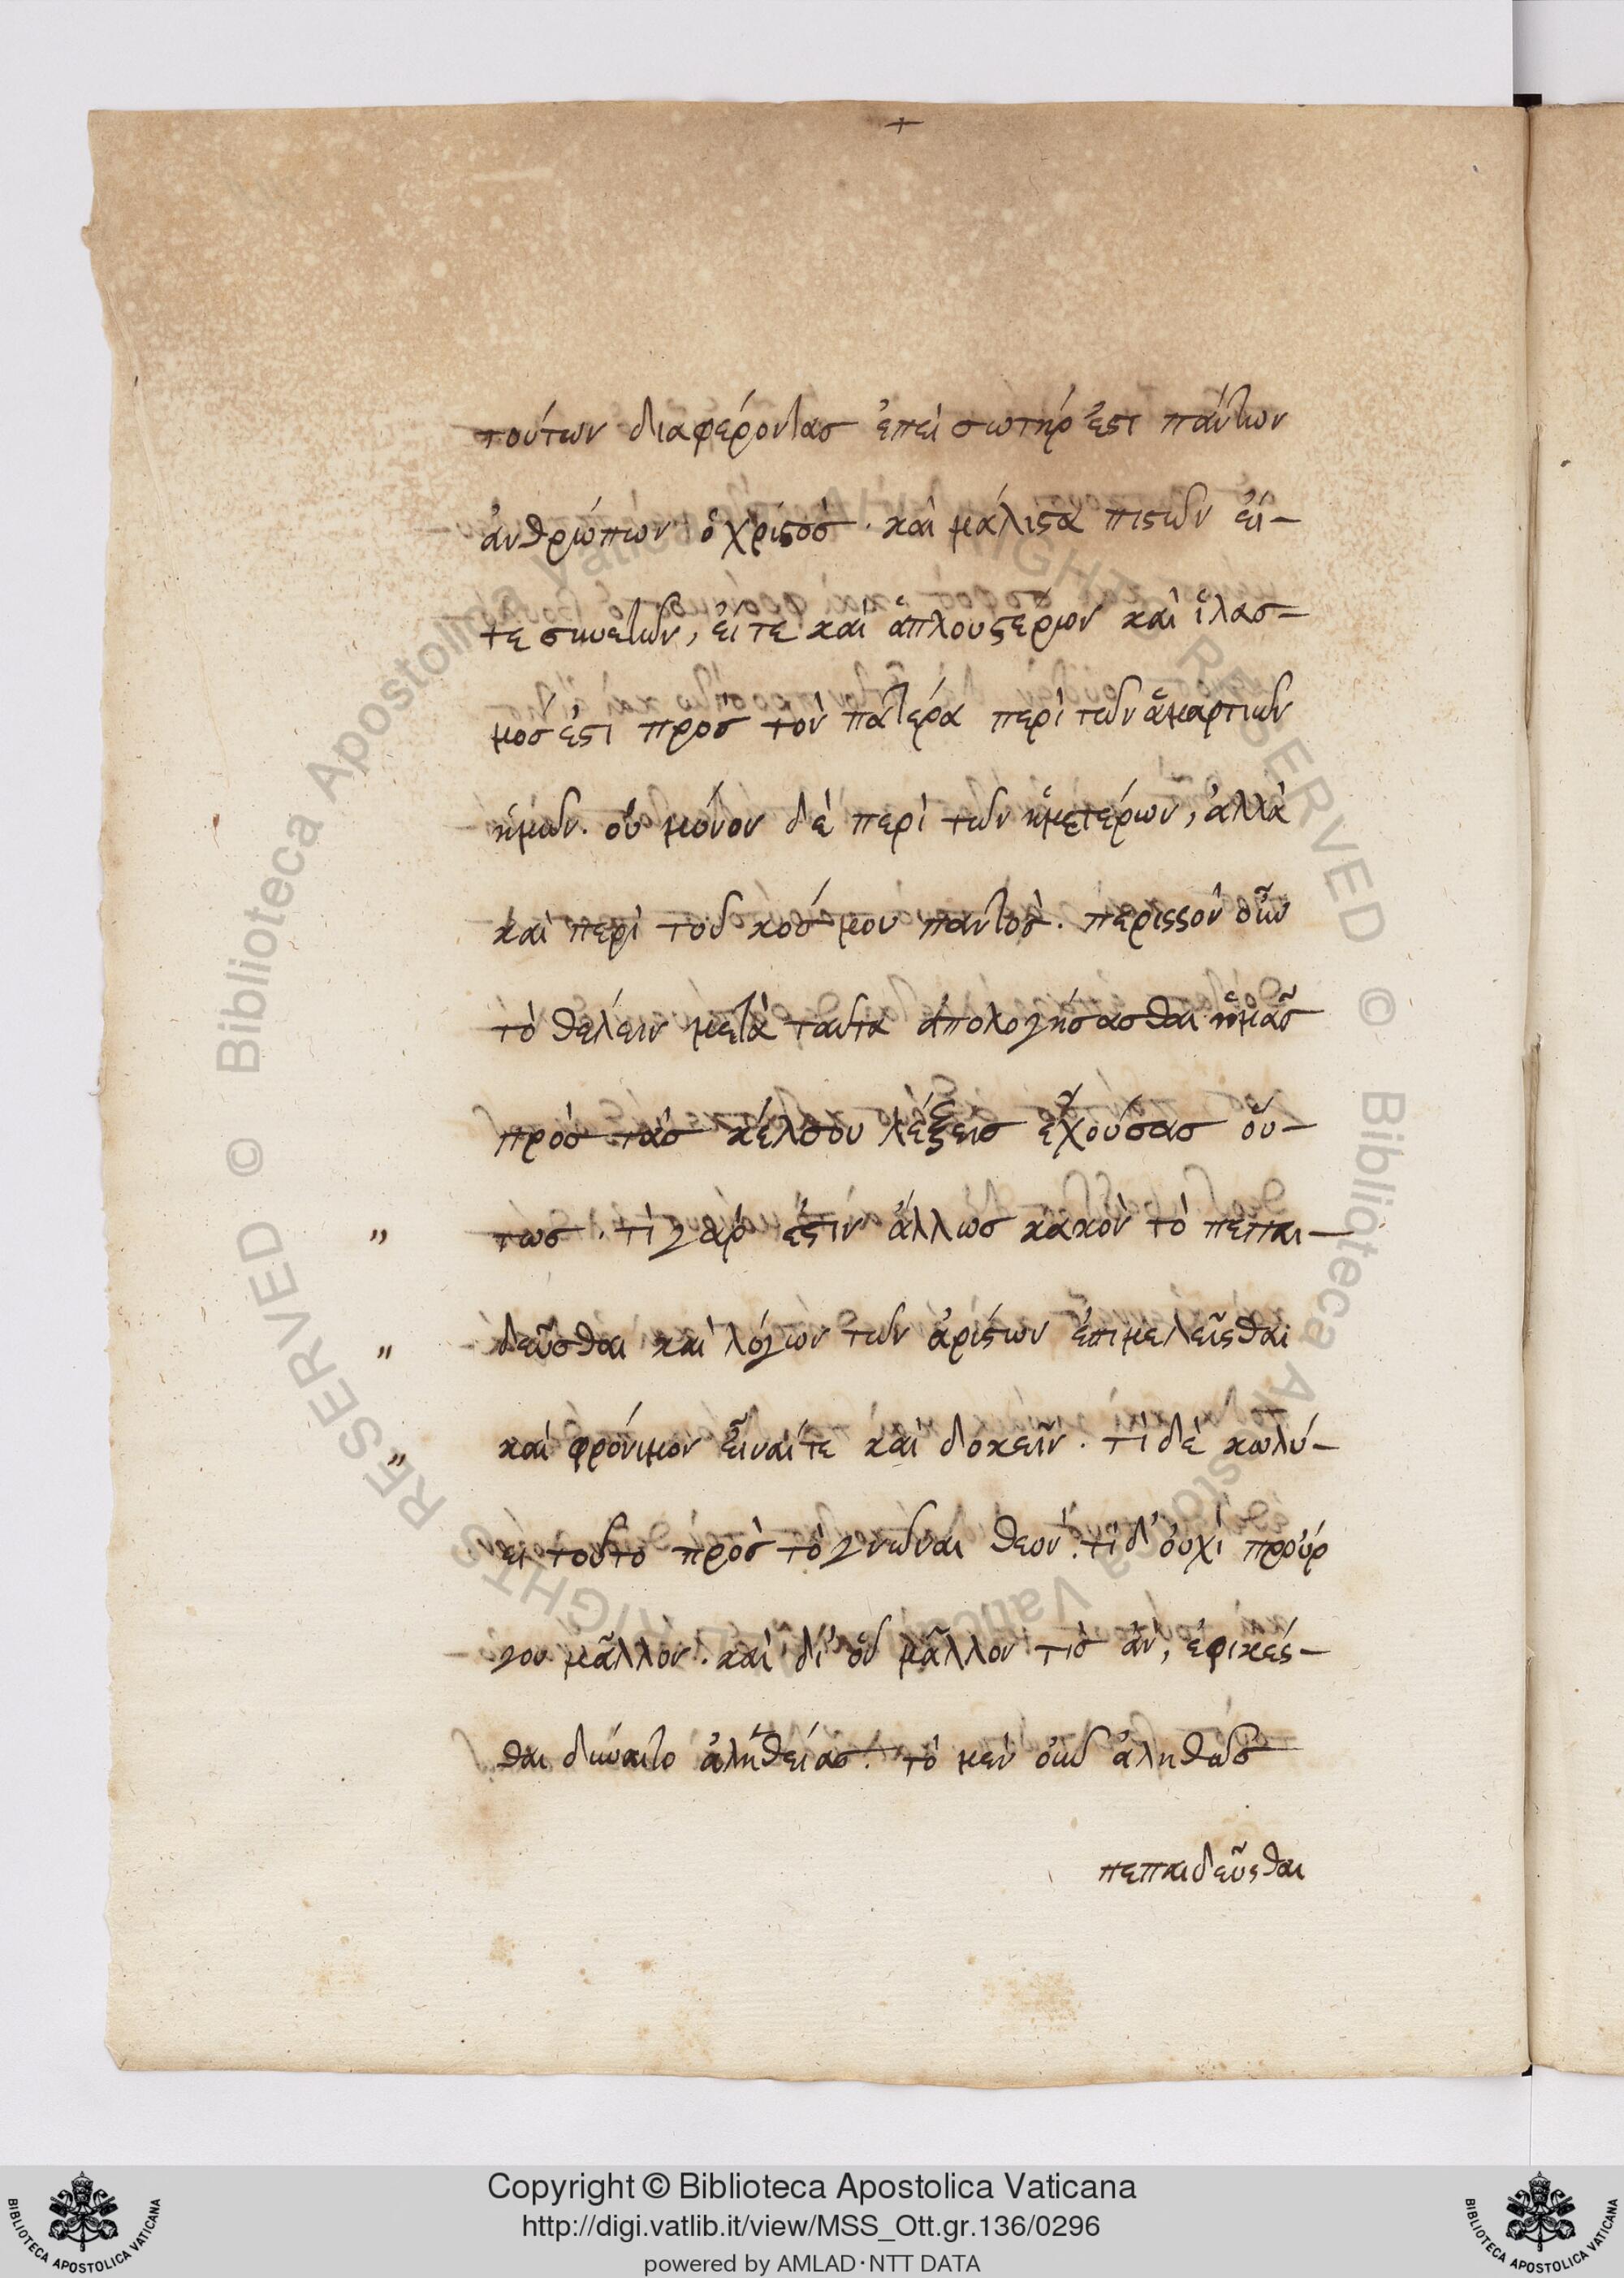 +
τούτων διαφέροντας ἐπεὶ σωτήρ ἐστι πάντων
ἀνθρώπων ὁ χριστὸς· καὶ μάλιστα πιστῶν εἴ-
τε συνετῶν, εἴτε καὶ ἁπλουστέρων καὶ ἱλασ-
μός ἐστι πρὸς τὸν πατέρα περὶ τῶν ἁμαρτιῶν
ἡμῶν. οὐ μόνον δὲ περὶ τῶν ἡμετέρων, ἀλλὰ
καὶ περὶ τοῦ κόσμου παντὸς. περισσὸν οὖν
τὸ θέλειν μετὰ ταῦτα ἀπολογήσασθαι ἡμᾶς
πρὸς τὰς κέλσου λέξεις ἐχούσας οὕ-
„ τως· τί γάρ ἐστιν ἄλλως κακὸν τὸ πεπαι-
„ δεῦσθαι καὶ λόγων τῶν ἀρίστων ἐπιμελεῖσθαι
„ καὶ φρόνιμον εἶναί τε καὶ δοκεῖν. τί δὲ κωλύ-
ει τοῦτο πρὸς τὸ γνῶναι θεόν. τί δ' οὐχὶ προὔρ
γου μᾶλλον. καὶ δι' οὗ μᾶλλον τὶς ἂν, ἐφικέσ-
θαι δύναιτο ἀληθείας. τὸ μὲν οὖν ἀληθῶς
πεπαιδεῦσθαι
© Biblioteca Apostolica Vaticana RIGHTS RESERVED © Biblioteca Apostolica Vaticana RIGHTS RESERVED
BIBLIOTECA APOSTOLICA VATICANA
Copyright © Biblioteca Apostolica Vaticana
http://digi.vatlib.it/view/MSS_Ott.gr.136/0296
powered by AMLAD·NTT DATA
BIBLIOTECA APOSTOLICA VATICANA